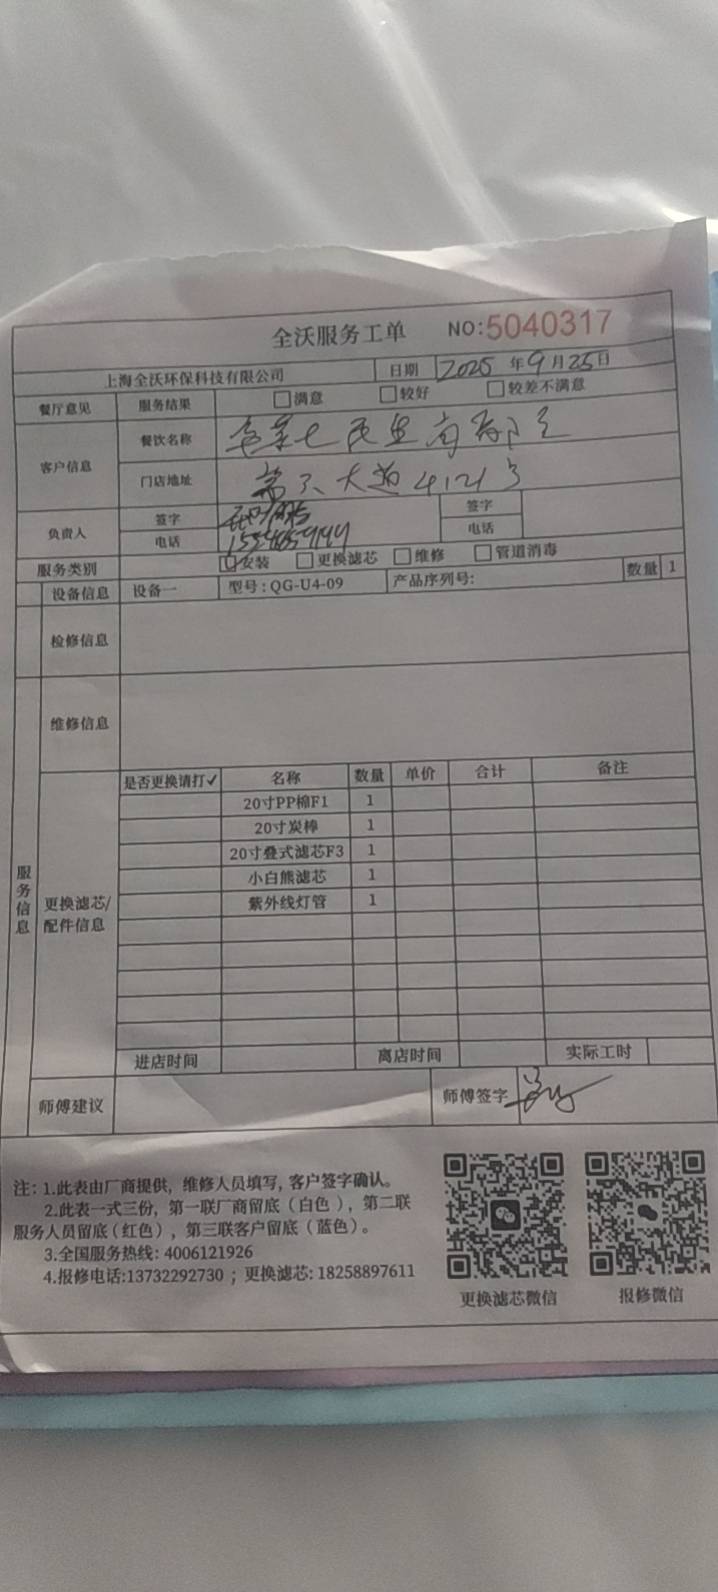 全沃服务工单 NO:5040317
上海全沃环保科技有限公司 日期 2025 年 9 月 25 日
餐厅意见 服务结果 满意 较好 较差不满意
客户信息 餐饮名称
门店地址 大道4121号
负责人 签字 签字
电话 电话
服务类别 安装 更换滤芯 维修 管道消毒
设备信息 设备一 型号:QG-U4-09 产品序列号: 数量 1
检修信息
维修信息
服务信息
更换滤芯/配件信息
是否更换请打✓ 名称 数量 单价 合计 备注
20寸PP棉F1 1
20寸炭棒 1
20寸叠式滤芯F3 1
小白熊滤芯 1
紫外线灯管 1
进店时间 离店时间 实际工时
师傅建议 师傅签字
注: 1.此表由厂商提供, 维修人员填写, 客户签字确认。
2.此表一式三份, 第一联厂商留底(白色), 第二联
服务人员留底(红色), 第三联客户留底(蓝色)。
3.全国服务热线: 4006121926
4.报修电话:13732292730 ; 更换滤芯: 18258897611
更换滤芯微信 报修微信